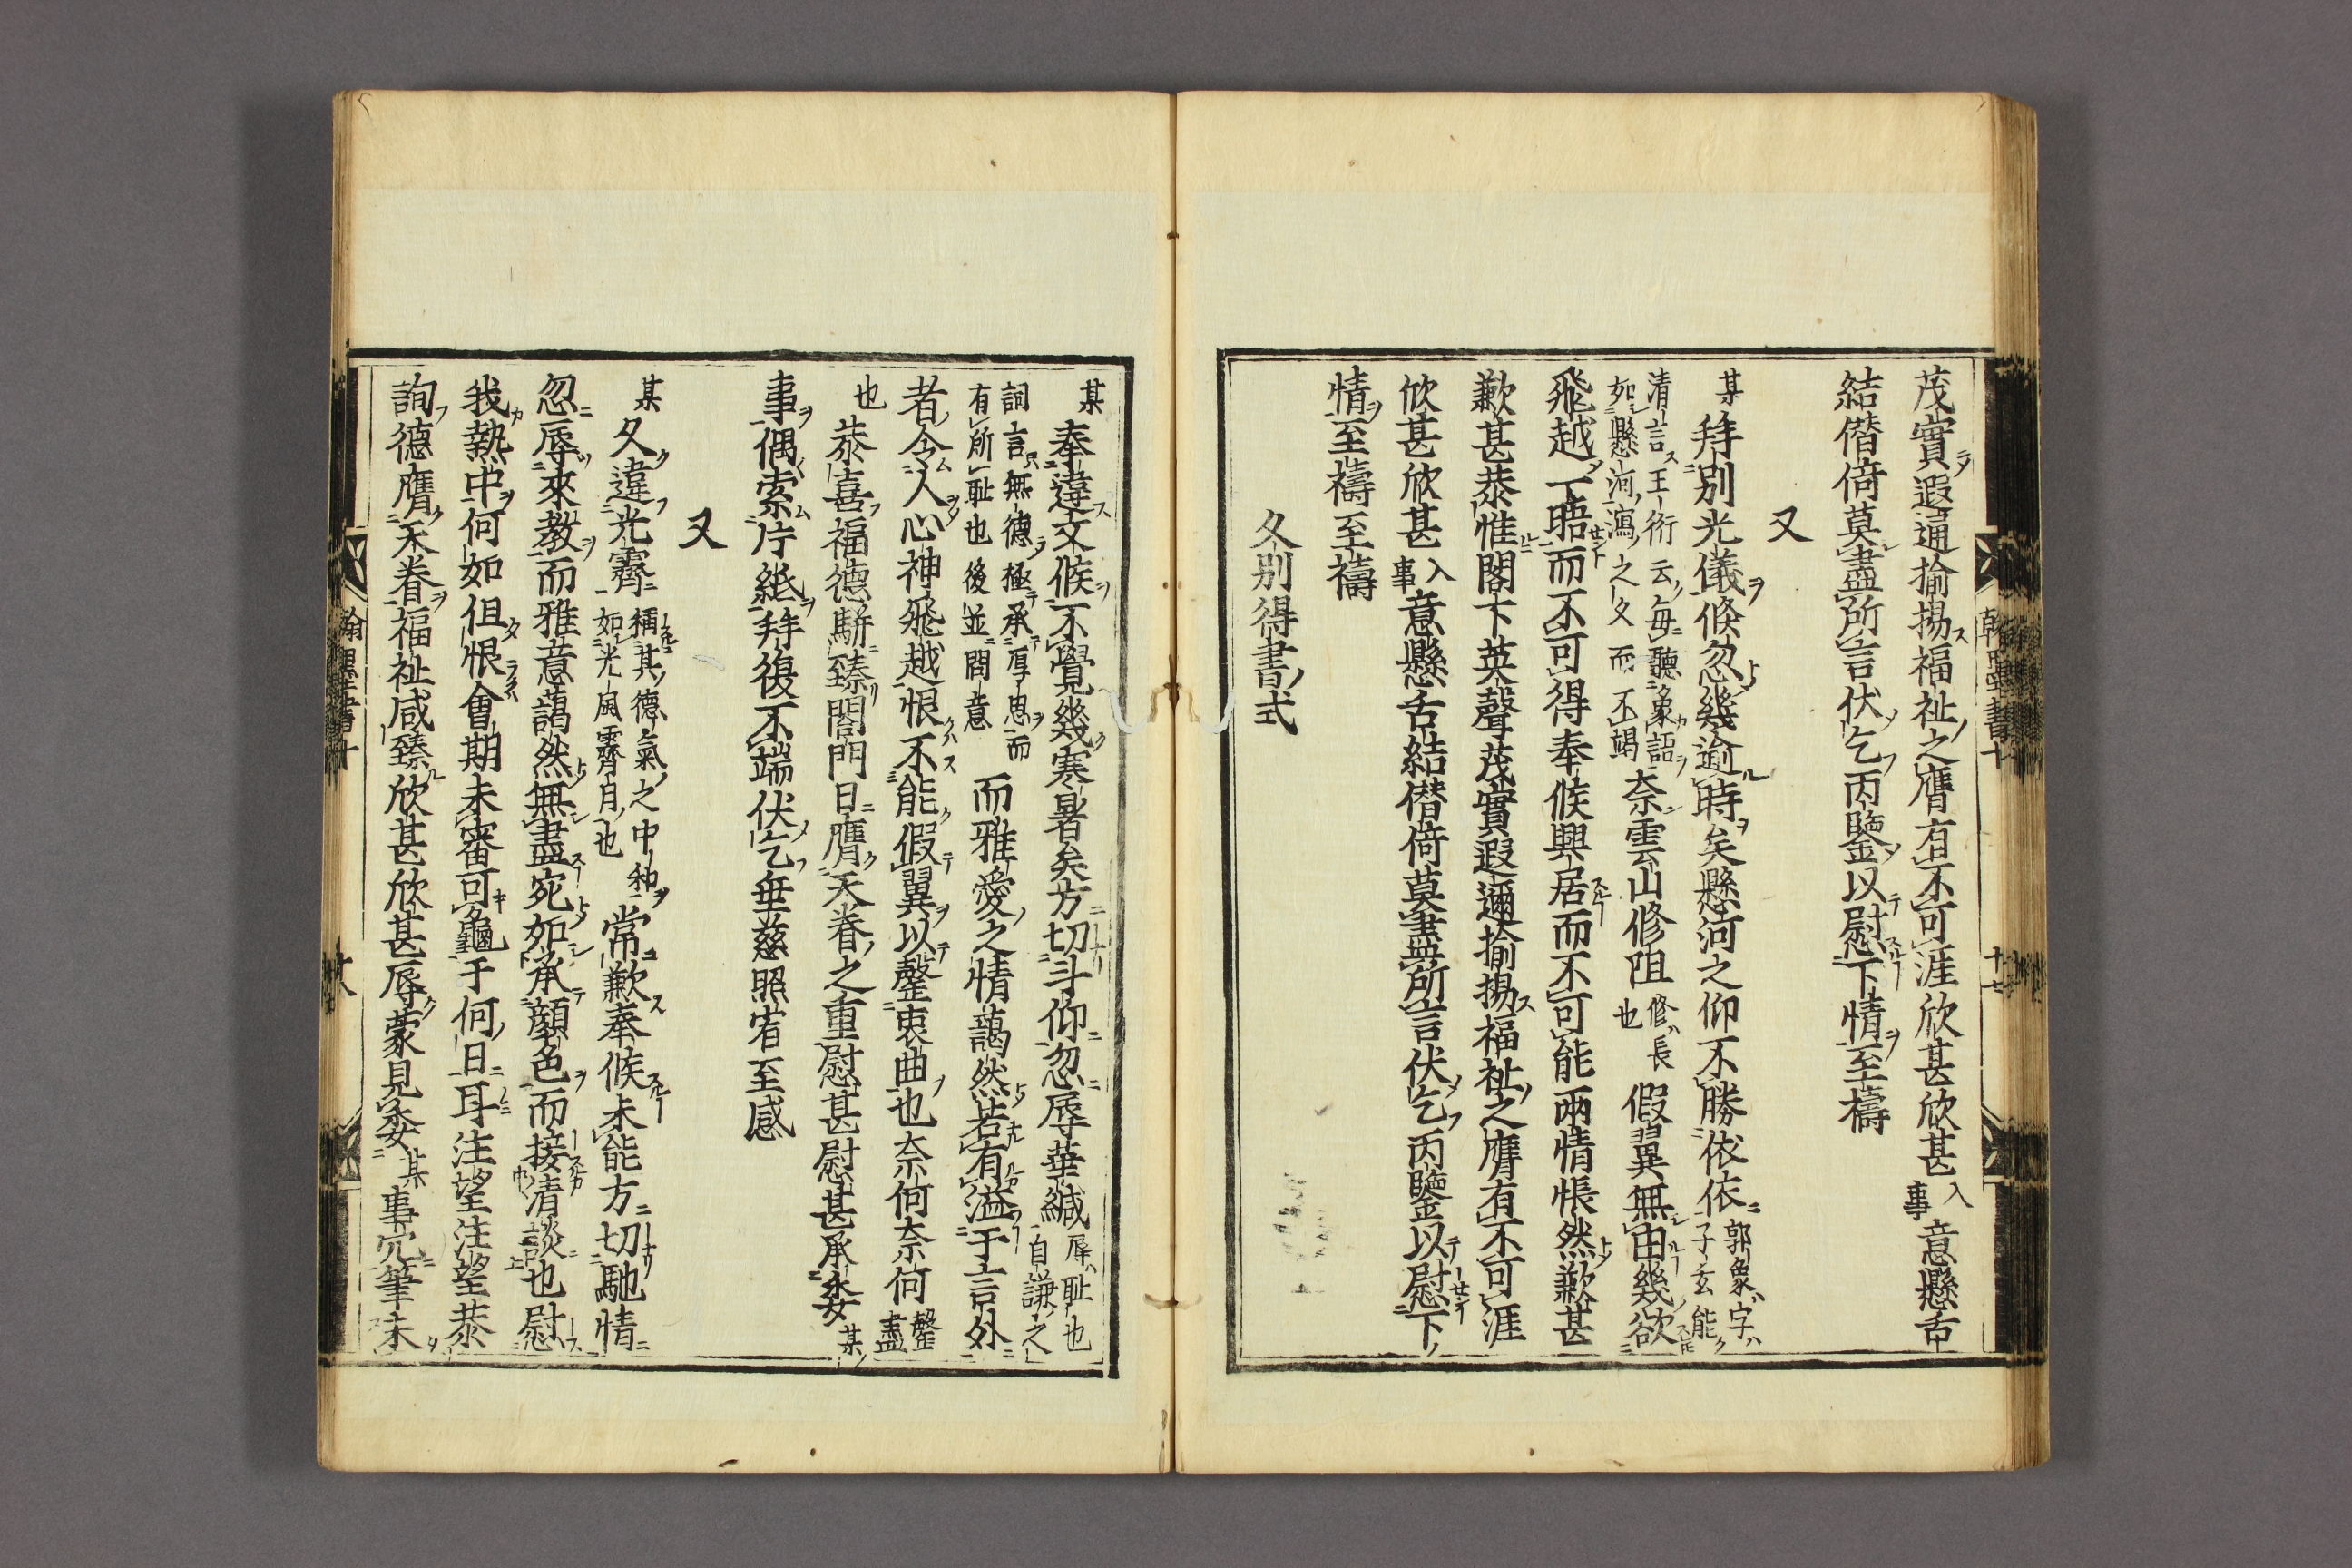 茂實遐通揄揚福祉之膺有不可涯欣甚欣甚入事意懸舌
結僣倚莫盡所言伏乞丙鑒以慰下情至禱
又
某拜別光儀倏忽幾逾時矣懸河之仰不勝依依郭象字子玄能
清言王衍云每聽象語如懸河瀉之久而不竭奈雲山修阻修長也假翼無由幾欲
飛越一晤而不可得奉候興居而不可能兩情悵然歉甚
歉甚恭惟閣下英聲茂實遐邇揄揚福祉之膺有不可涯
欣甚欣甚入事意懸舌結僣倚莫盡所言伏乞丙鑒以慰下
情至禱至禱
久別得書式
某奉違文候不覺幾寒暑矣方切斗仰忽辱華緘辱耻也自謙之
詞言無德極承厚思而有所耻也後並問意而雅愛之情藹然若有溢于言外
者令人心神飛越恨不能假翼以罄衷曲也奈何奈何罄盡
也恭喜福德駢臻閤門日膺天眷之重慰甚慰甚承委某
事偶索片紙拜復不端伏乞垂慈照宥至感
又
某久違光霽稱其德氣之中和如光風霽月也常歉奉候未能方切馳情
忽辱來教而雅意藹然無盡宛如承顏色而接清談也慰
我熱中何如但恨會期未審可龜于何日耳注望注望恭
詢德膺天眷福祉咸臻欣甚欣甚辱蒙見委某事冗筆未
翰墨書十
十七
翰墨書十